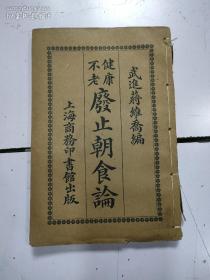 武進蔣維喬編
健康不老
廢止朝食論
上海商務印書館出版